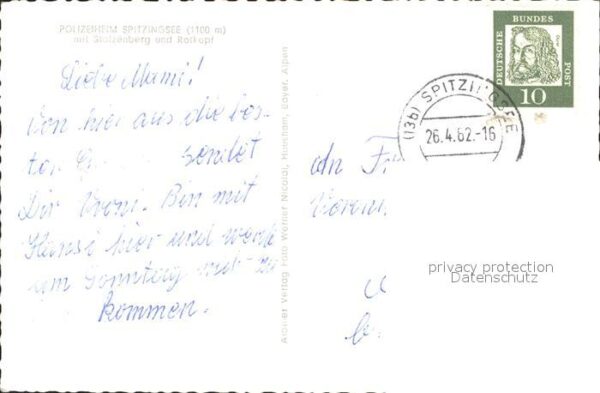 POLIZEIHEIM SPITZINGSEE (1100 m)
mit Stolzenberg und Rotkopf
Liebe Mami!
Von hier aus die bes-
ten G sendet
Dir Vroni. Bin mit
Hansi hier und werde
am Sonntag
kommen.
Alpiner Verlag Foto Werner Nicolai, Hausham, Bayer. Alpen
DEUTSCHE
BUNDES
POST
10
(13b) SPITZINGSEE
26.4.62.-16
An
privacy protection
Datenschutz